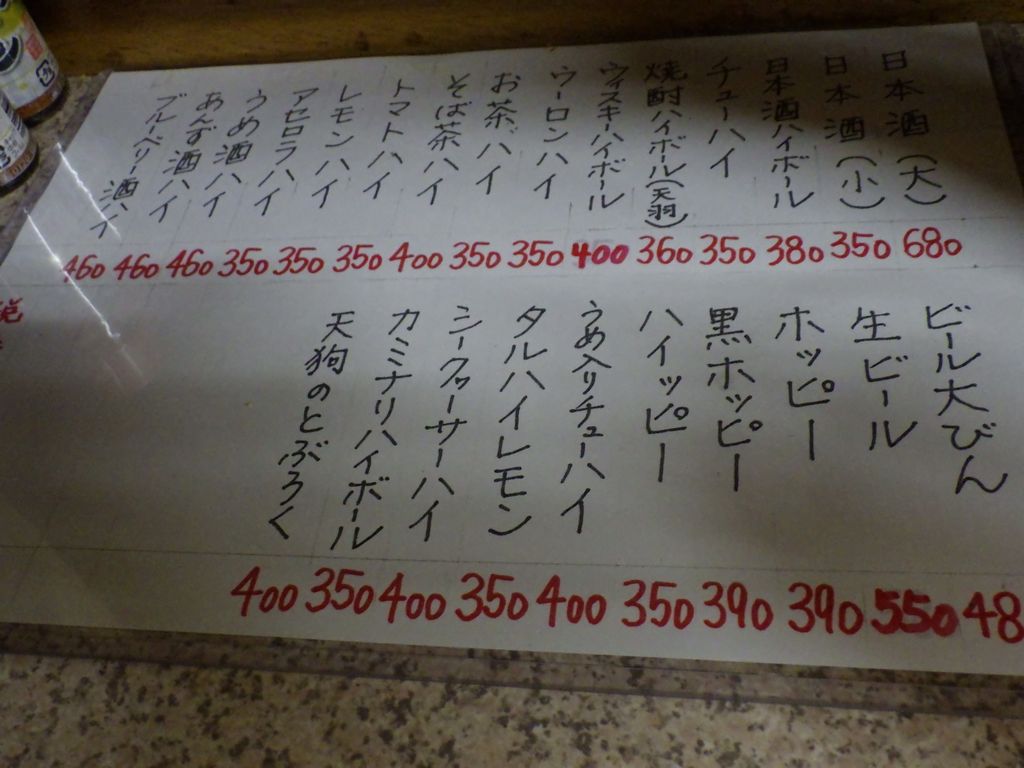 日本酒(大) 680
日本酒(小) 350
日本酒ハイボール 380
チューハイ 350
焼酎ハイボール(天羽) 360
ウィスキーハイボール 400
ウーロンハイ 350
お茶ハイ 350
そば茶ハイ 400
トマトハイ 350
レモンハイ 350
アセロラハイ 350
うめ酒ハイ 460
あんず酒ハイ 460
ブルーベリー酒ハイ 460
ビール大びん 48
生ビール 550
ホッピー 390
黒ホッピー 390
ハイッピー 350
うめ入りチューハイ 400
タルハイレモン 350
シークヮーサーハイ 400
カミナリハイボール 350
天狗のとぶろく 400
税